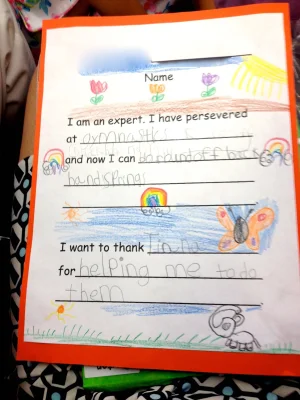 Name
I am an expert. I have persevered
at gymnastik
and now I can
handsprings
I want to thank
for helping me to do
them